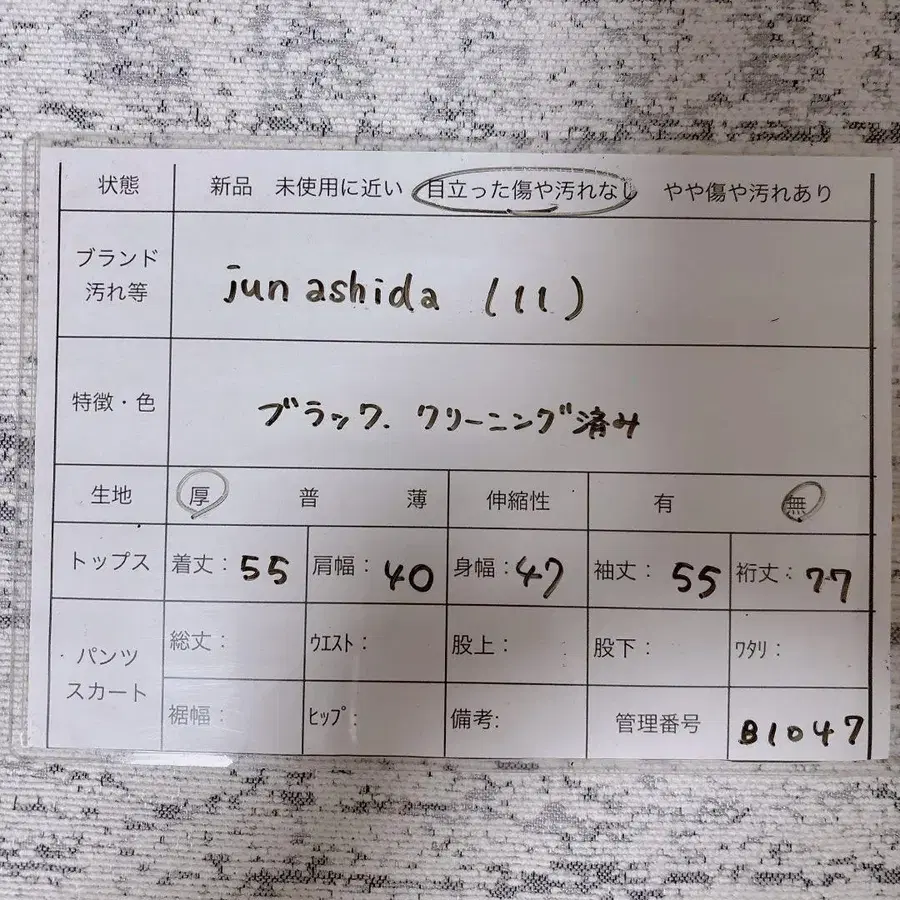 状態 新品 未使用に近い 目立った傷や汚れなし やや傷や汚れあり
ブランド
汚れ等
jun ashida (11)
特徴・色
ブラック. クリーニング済み
生地 厚 普 薄 伸縮性 有 無
トップス 着丈: 55 肩幅: 40 身幅: 47 袖丈: 55 裄丈: 77
パンツ
スカート
総丈: ウエスト: 股上: 股下: ワタリ:
裾幅: ヒップ: 備考: 管理番号 B1047